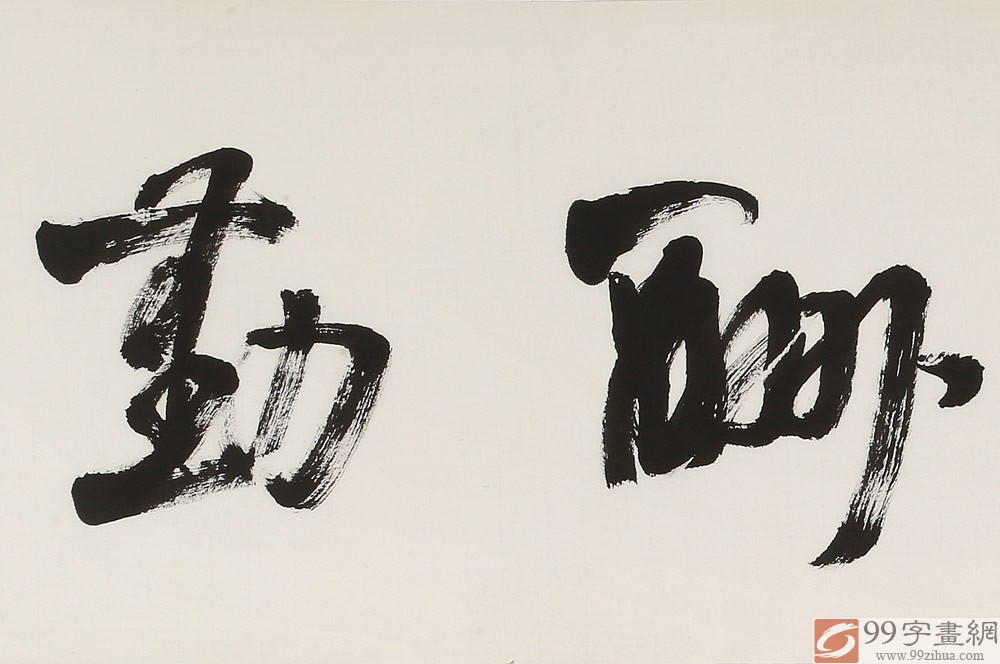 酬勤
99字畫網
www.99zihua.com